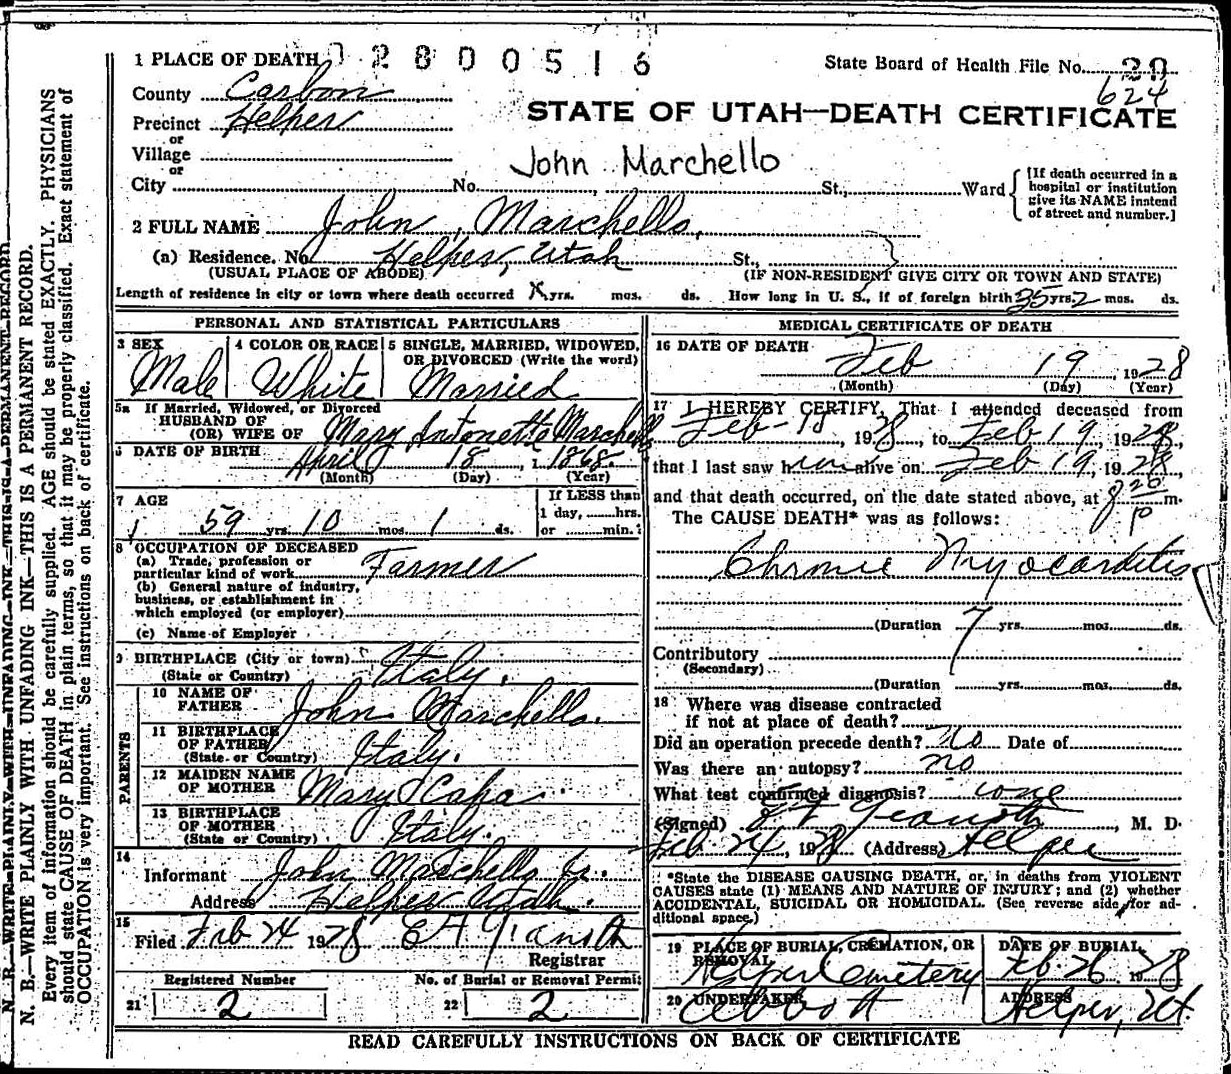 1 PLACE OF DEATH 02800516 State Board of Health File No. 29
County Carbon 624
Precinct Helper STATE OF UTAH—DEATH CERTIFICATE
or
Village
or
John Marchello
City No. St., Ward {[If death occurred in a hospital or institution give its NAME instead of street and number.]
2 FULL NAME John Marchello.
(a) Residence. No. Helper, Utah St.,
(USUAL PLACE OF ABODE) (IF NON-RESIDENT GIVE CITY OR TOWN AND STATE)
Length of residence in city or town where death occurred yrs. mos. ds. How long in U. S., if of foreign birth 35 yrs. 2 mos. ds.
PERSONAL AND STATISTICAL PARTICULARS
3 SEX 4 COLOR OR RACE 5 SINGLE, MARRIED, WIDOWED,
OR DIVORCED (Write the word)
Male White Married
5a If Married, Widowed, or Divorced
HUSBAND OF
(OR) WIFE OF Mary Antonette Marchello
6 DATE OF BIRTH April 18, 1868.
(Month) (Day) (Year)
7 AGE If LESS than
1 day, hrs.
59 yrs. 10 mos. 1 ds. or min.?
8 OCCUPATION OF DECEASED
(a) Trade, profession or
particular kind of work Farmer
(b) General nature of industry,
business, or establishment in
which employed (or employer)
(c) Name of Employer
9 BIRTHPLACE (City or town)
(State or Country) Italy.
PARENTS
10 NAME OF
FATHER John Marchello.
11 BIRTHPLACE
OF FATHER
(State or Country) Italy.
12 MAIDEN NAME
OF MOTHER Mary Capa.
13 BIRTHPLACE
OF MOTHER
(State or Country) Italy.
14
Informant John Marchello Jr.
Address Helper Utah.
15
Filed Feb 24 1928
Registrar
Registered Number No. of Burial or Removal Permit
21 2 22 2
MEDICAL CERTIFICATE OF DEATH
16 DATE OF DEATH
Feb 19, 1928
(Month) (Day) (Year)
17 I HEREBY CERTIFY, That I attended deceased from
Feb-18, 1928, to Feb 19, 1928,
that I last saw him alive on Feb 19, 1928
and that death occurred, on the date stated above, at 8 20 p m.
The CAUSE DEATH* was as follows:
Chronic Myocarditis
(Duration 7 yrs. mos. ds.
Contributory
(Secondary)
(Duration yrs. mos. ds.
18 Where was disease contracted
if not at place of death?
Did an operation precede death? no Date of
Was there an autopsy? no
What test confirmed diagnosis?
(Signed) , M. D.
Feb 24, 1928 (Address) Helper
*State the DISEASE CAUSING DEATH, or, in deaths from VIOLENT
CAUSES state (1) MEANS AND NATURE OF INJURY; and (2) whether
ACCIDENTAL, SUICIDAL OR HOMICIDAL. (See reverse side for ad-
ditional space.)
19 PLACE OF BURIAL, CREMATION, OR REMOVAL DATE OF BURIAL
Helper Cemetery Feb. 26 1928
20 UNDERTAKER ADDRESS
Abbott Helper, Ut
READ CAREFULLY INSTRUCTIONS ON BACK OF CERTIFICATE
N. B.—WRITE PLAINLY WITH UNFADING INK—THIS IS A PERMANENT RECORD
N. B.—WRITE PLAINLY WITH UNFADING INK—THIS IS A PERMANENT RECORD.
Every item of information should be carefully supplied. AGE should be stated EXACTLY. PHYSICIANS
should state CAUSE OF DEATH in plain terms, so that it may be properly classified. Exact statement of
OCCUPATION is very important. See instructions on back of certificate.